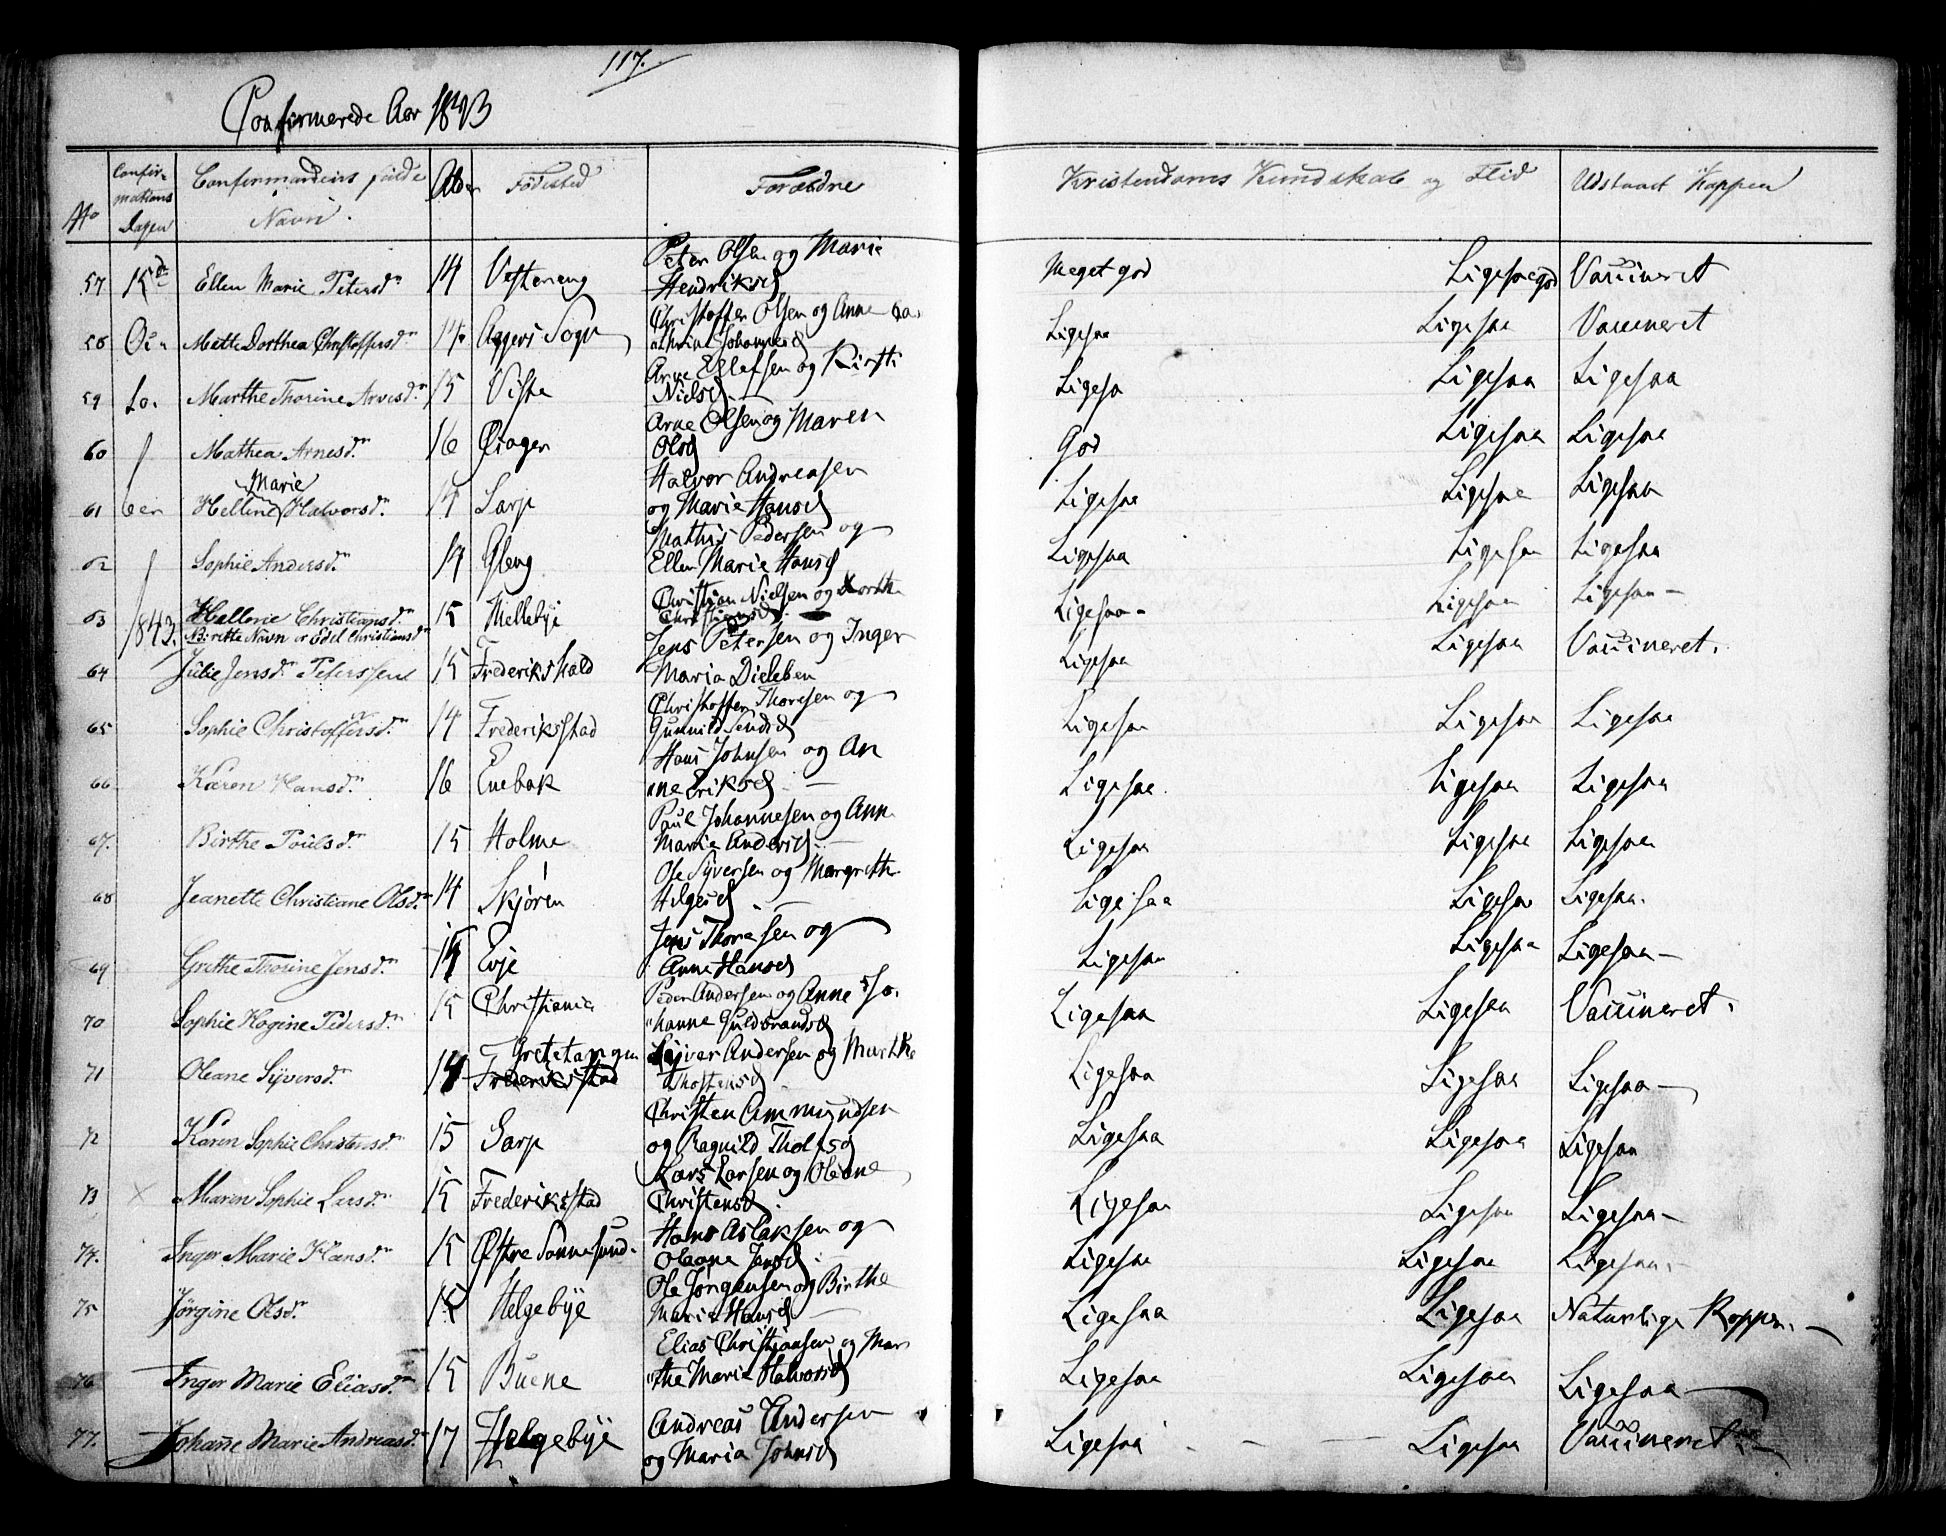 117.
Confirmerede Aar 1843
No
Confirmations Dagen
Confirmandens fulde Navn.
Alder
Fødested
Forældre
Kristendoms Kundskab og Flid
Udstaaet Kopper
57 15de Ellen Marie Petersdr 14 Vestereng Peter Olsen og Marie Hendriksd Meget god Ligesaa god Vaccineret
58 Oc- Mette Dorthea Christoffersdr 14. Aggers Sogn Christoffer Olsen og Anne Ca- athrine Johannesd Ligesaa Ligesaa Vaccineret
59 to. Marthe Thorine Arnesdr 15 Viste Arne Ellefsen og Kirsti Nielsd Ligesa Ligesaa Ligesaa
60 Mathea Arnesdr 16 Arne Olsen og Maren Olsd God Ligesaa Ligesaa
61 ber Helline Marie Halvorsdr 14 Sarp Halvor Andreasen og Marie Hansd Ligesaa Ligesaa Ligesaa
62 Sophie Andersdr 14 Gleng Mathis Pedersen og Ellen Marie Hansd Ligesaa Ligesaa Ligesaa
63 1843. Hellerie Christiansdr Birette Navn er Edel Christiansdr 15 Mellebye Christian Nielsen og Dorthe Christiansd Ligesaa- Ligesaa Ligesaa-
64 Julie Jensdr Peterssen 15 Frederikshald Jens Petersen og Inger Maria Ligesaa Ligesaa Vaccineret.
65 Sophie Christoffersdr 14 Frederiksstad Christoffer Thoresen og Gunnild Ligesaa Ligesaa Ligesaa
66 Karen Hansdr 16 Enebak Hans Johnsen og An ne Eriksd. Ligesaa Ligesaa Ligesaa
67. Birthe Poulsdr 15 Holme Paul Johannesen og Ann Marie Andersd. Ligesaa Ligesaa Ligesaa
68 Jeanette Christiane Olsdr 14 Skjøren Ole Syversen og Margrethe Helgesd Ligesaa Ligesaa Ligesaa.
69 Grethe Thorine Jensdr 15 Evje Jens Thoresen og Anne Hansd Ligesaa Ligesaa Ligesaa-
70 Sophie Hogine Pedersdr 15 Christiania Peder Andersen og Anne Jo. hanne Guldbrandsd Ligesaa Ligesaa Vaccineret.
71 Oleane Syversdr 14 Gretetangen Frederiksstad Syver Andersen og Marthe Thostensd Ligesaa Ligesaa Ligesaa-
72 Karen Sophie Christensdr 15 Sarp Christen Ammundsen og Ragnild Tholfsd Ligesaa Ligesaa Ligesaa
73 × Maren Sophie Larsdr 15 Frederiksstad Lars Larsen og Oleane Christensd. Ligesaa Ligesaa Ligesaa-
74. Inger Marie Hansdr 15 Østre Sannesund. Hans Aslaksen og Oleane Jensd Ligesaa Ligesaa Ligesaa.-
75 Jørgine Olsdr 15 Helgebye Ole Jørgensen og Birthe Marie Hansd Ligesaa Ligesaa Naturlige Kopper.-
76 Inger Marie Eliasdr 15 Buene Elias Christiansen og Mar the Marie Halvorsd Ligesaa Ligesaa Ligesaa-
77. Johanne Marie Andreasdr 17 Helgebye Andreas Andersen og Maria Johnsd Ligesaa - - - Ligesaa Vaccineret.-